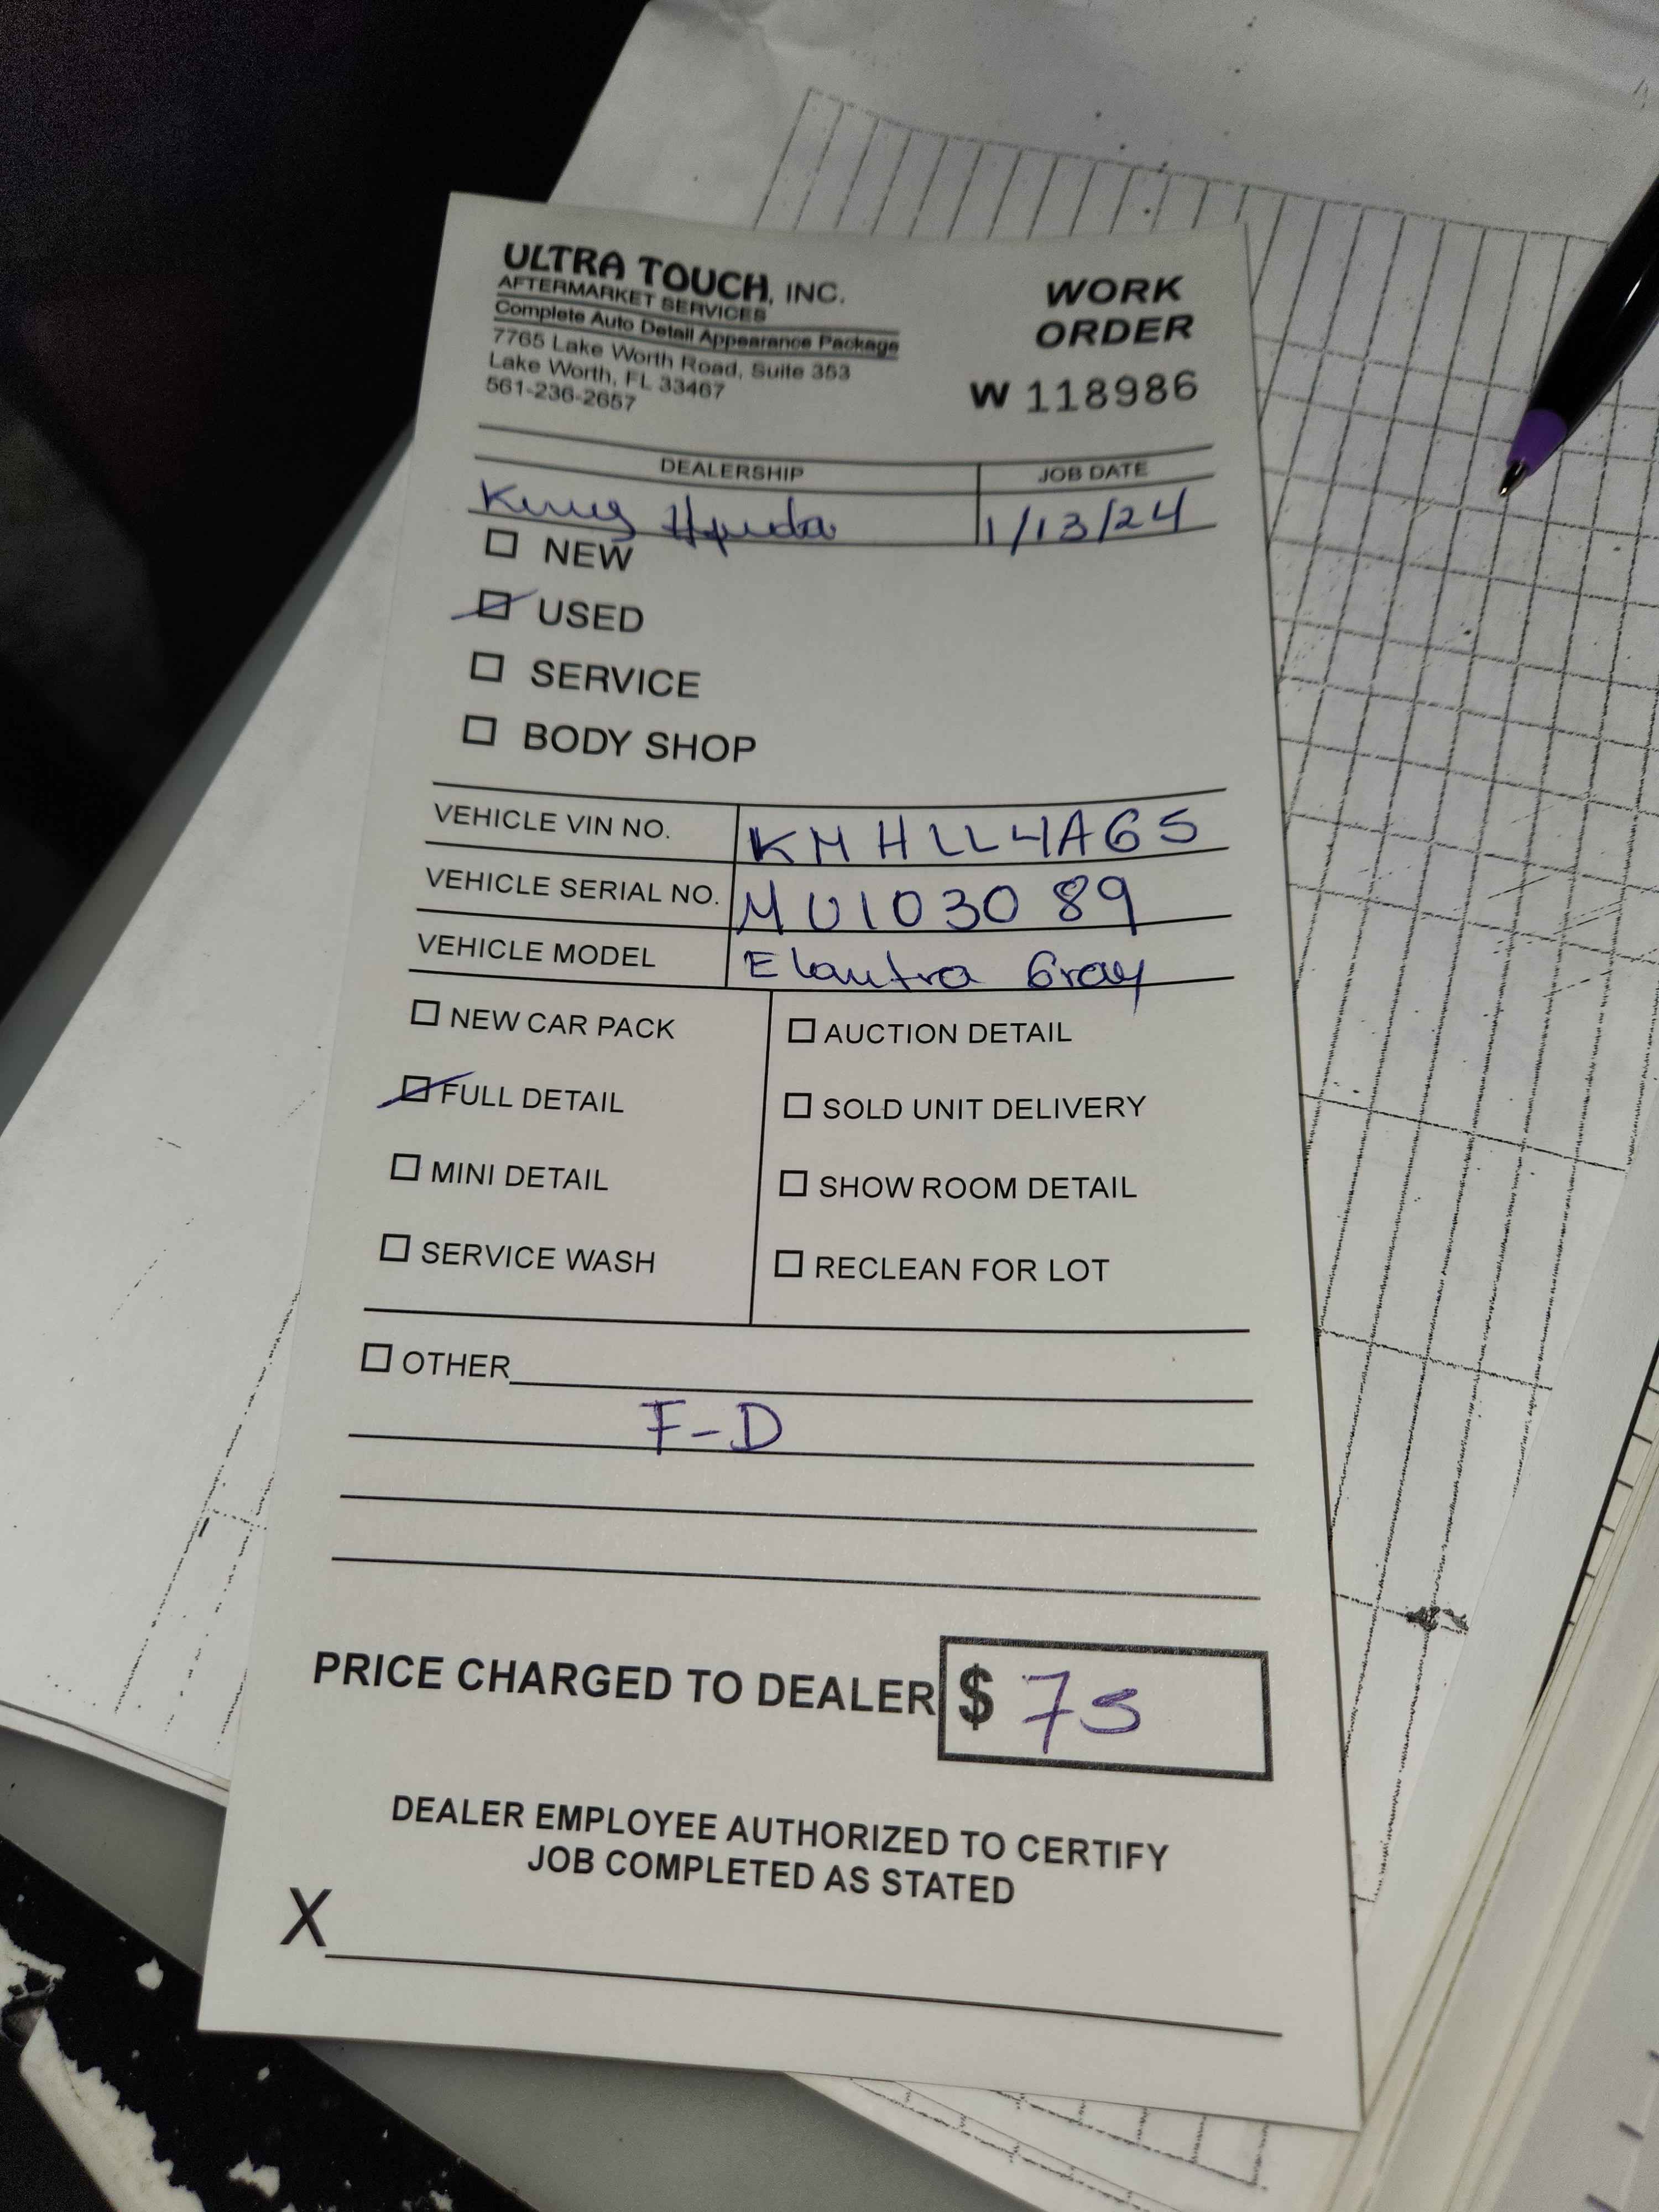 ULTRA TOUCH, INC.
AFTERMARKET SERVICES
Complete Auto Detail Appearance Package
7765 Lake Worth Road, Suite 353
Lake Worth, FL 33467
561-236-2657
WORK
ORDER
W 118986
DEALERSHIP JOB DATE
King 1/13/24
NEW
USED
SERVICE
BODY SHOP
VEHICLE VIN NO. KMHLL4AG5
VEHICLE SERIAL NO. MU103089
VEHICLE MODEL Elantra Gray
NEW CAR PACK AUCTION DETAIL
FULL DETAIL SOLD UNIT DELIVERY
MINI DETAIL SHOW ROOM DETAIL
SERVICE WASH RECLEAN FOR LOT
OTHER
F-D
PRICE CHARGED TO DEALER $ 75
DEALER EMPLOYEE AUTHORIZED TO CERTIFY
JOB COMPLETED AS STATED
X